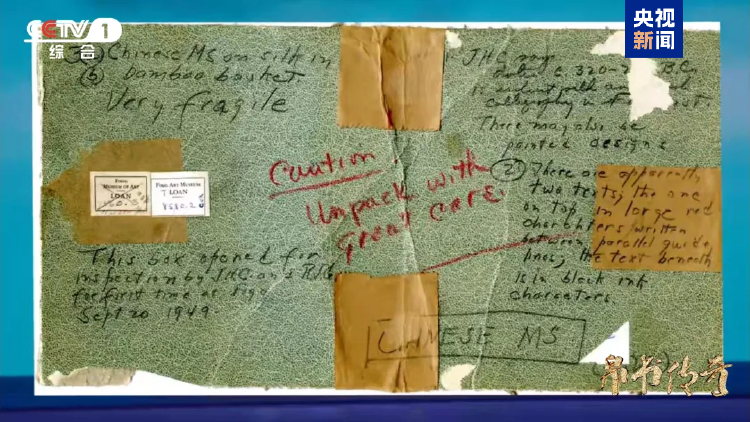 CCTV 1
综合
央视
新闻
Chinese MS on silk in
(b) bamboo basket
Very fragile
JHC says
dates c. 320-
B.C.
calligraphy
There may also be
painted designs
Caution!
Unpack with
great care.
FOGG
MUSEUM OF ART
LOAN
FOGG ART MUSEUM
LOAN
8580.2
(2) There are apparently
two texts, the one
on top in large red
characters written
between parallel guide
lines; the text beneath
is in black ink
characters.
This box opened for
inspection by JHC and
for first time at Fogg
Sept 20 1949.
CHINESE MS
帛书传奇